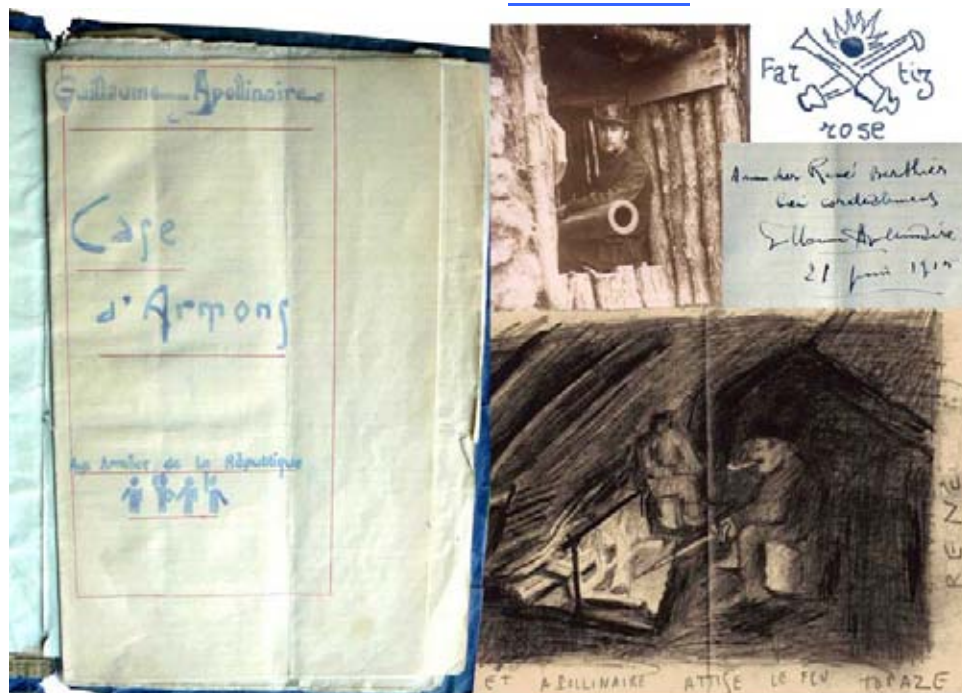 Guillaume Apollinaire
Case
d'Armons
Aux Armées de la République
Far tiz
rose
René Berthier
cordialement
Guillaume Apollinaire
21 juin 1915
RENÉ
ET APOLLINAIRE ATTISE LE FEU TOPAZE